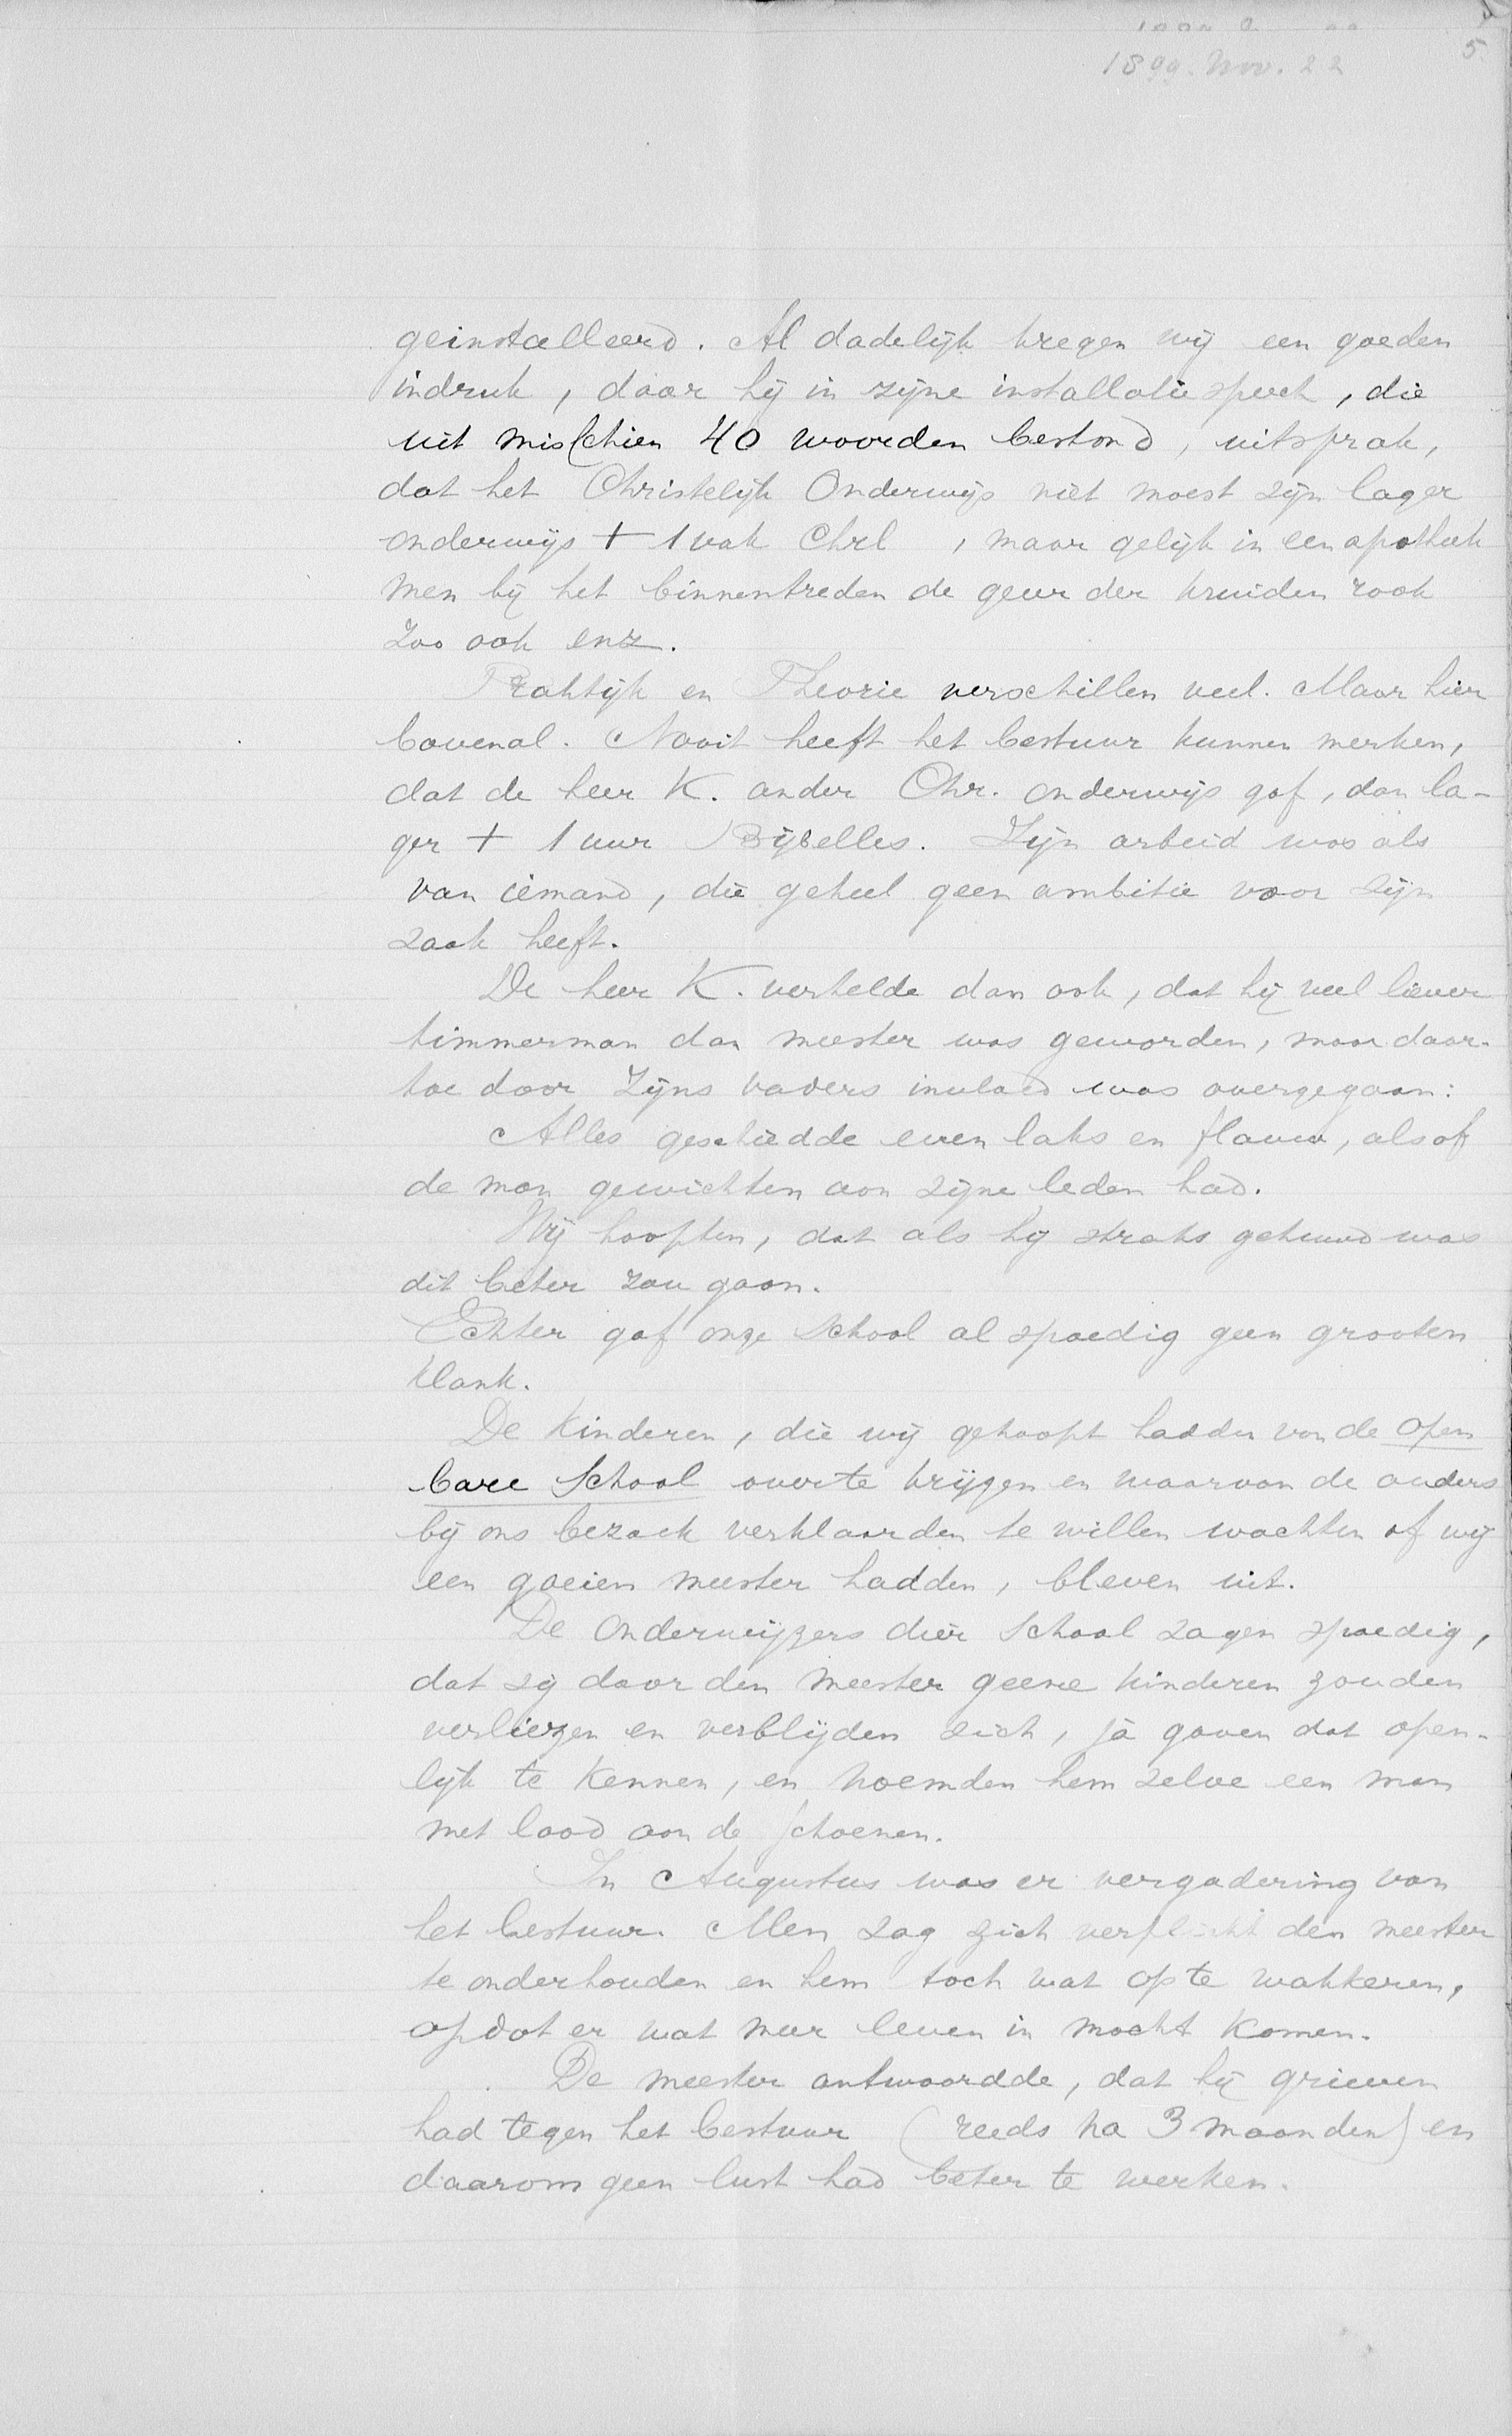 1899. Nov. 22
5
geinstalleerd. Al dadelijk kregen wij een goeden
indruk, daar hij in zijne installatie speech, die
uit misschien 40 woorden bestond, uitsprak,
dat het Christelijk Onderwijs niet moest zijn lager
onderwijs + 1 vak Chrl , maar gelijk in een apotheek
men bij het binnentreden de geur der kruiden rook
zoo ook enz.
Praktijk en Theorie verschillen veel. Maar hier
bovenal. Nooit heeft het bestuur kunnen merken,
dat de heer K. ander Chr. onderwijs gaf, dan la-
ger + 1 uur Bijbelles. Zijn arbeid was als
van iemand, die geheel geen ambitie voor zijn
zaak heeft.
De heer K. vertelde dan ook, dat hij veel liever
timmerman dan meester was geworden, maar daar-
toe door zijns vaders invloed was overgegaan:
Alles geschiedde even laks en flauw, alsof
de man gewichten aan zijne leden had.
Wij hoopten, dat als hij straks gehuwd was
dit beter zou gaan.
Echter gaf onze School al spoedig geen grooten
klank.
De kinderen, die wij gehoopt hadden van de open
bare School over te krijgen en waarvan de ouders
bij ons bezoek verklaarden te willen wachten of wij
een goeien meester hadden, bleven uit.
De Onderwijzers dier School zagen spoedig,
dat zij door den meester geene kinderen zouden
verliezen en verblijden zich, ja gaven dat open-
lijk te kennen, en noemden hem zelve een man
met lood aan de schoenen.
In Augustus was er vergadering van
het bestuur. Men zag zich verplicht den meester
te onderhouden en hem toch wat op te wakkeren,
opdat er wat meer leven in mocht komen.
De meester antwoordde, dat hij grieven
had tegen het bestuur (reeds na 3 maanden) en
daarom geen lust had beter te werken.